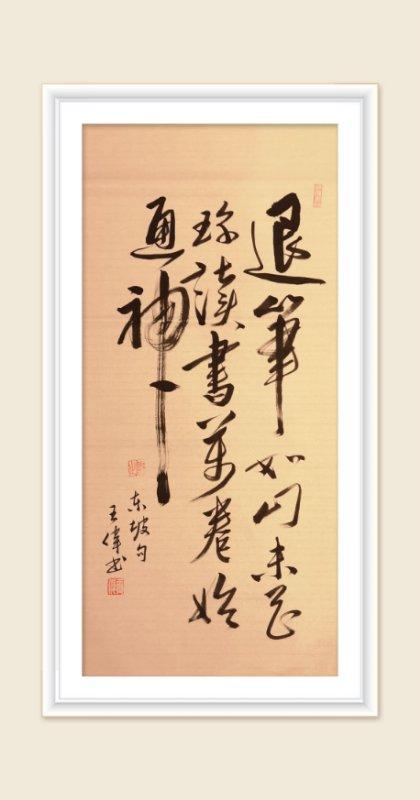 退筆如山未足
珍讀書萬卷始
通神
东坡句
王偉书